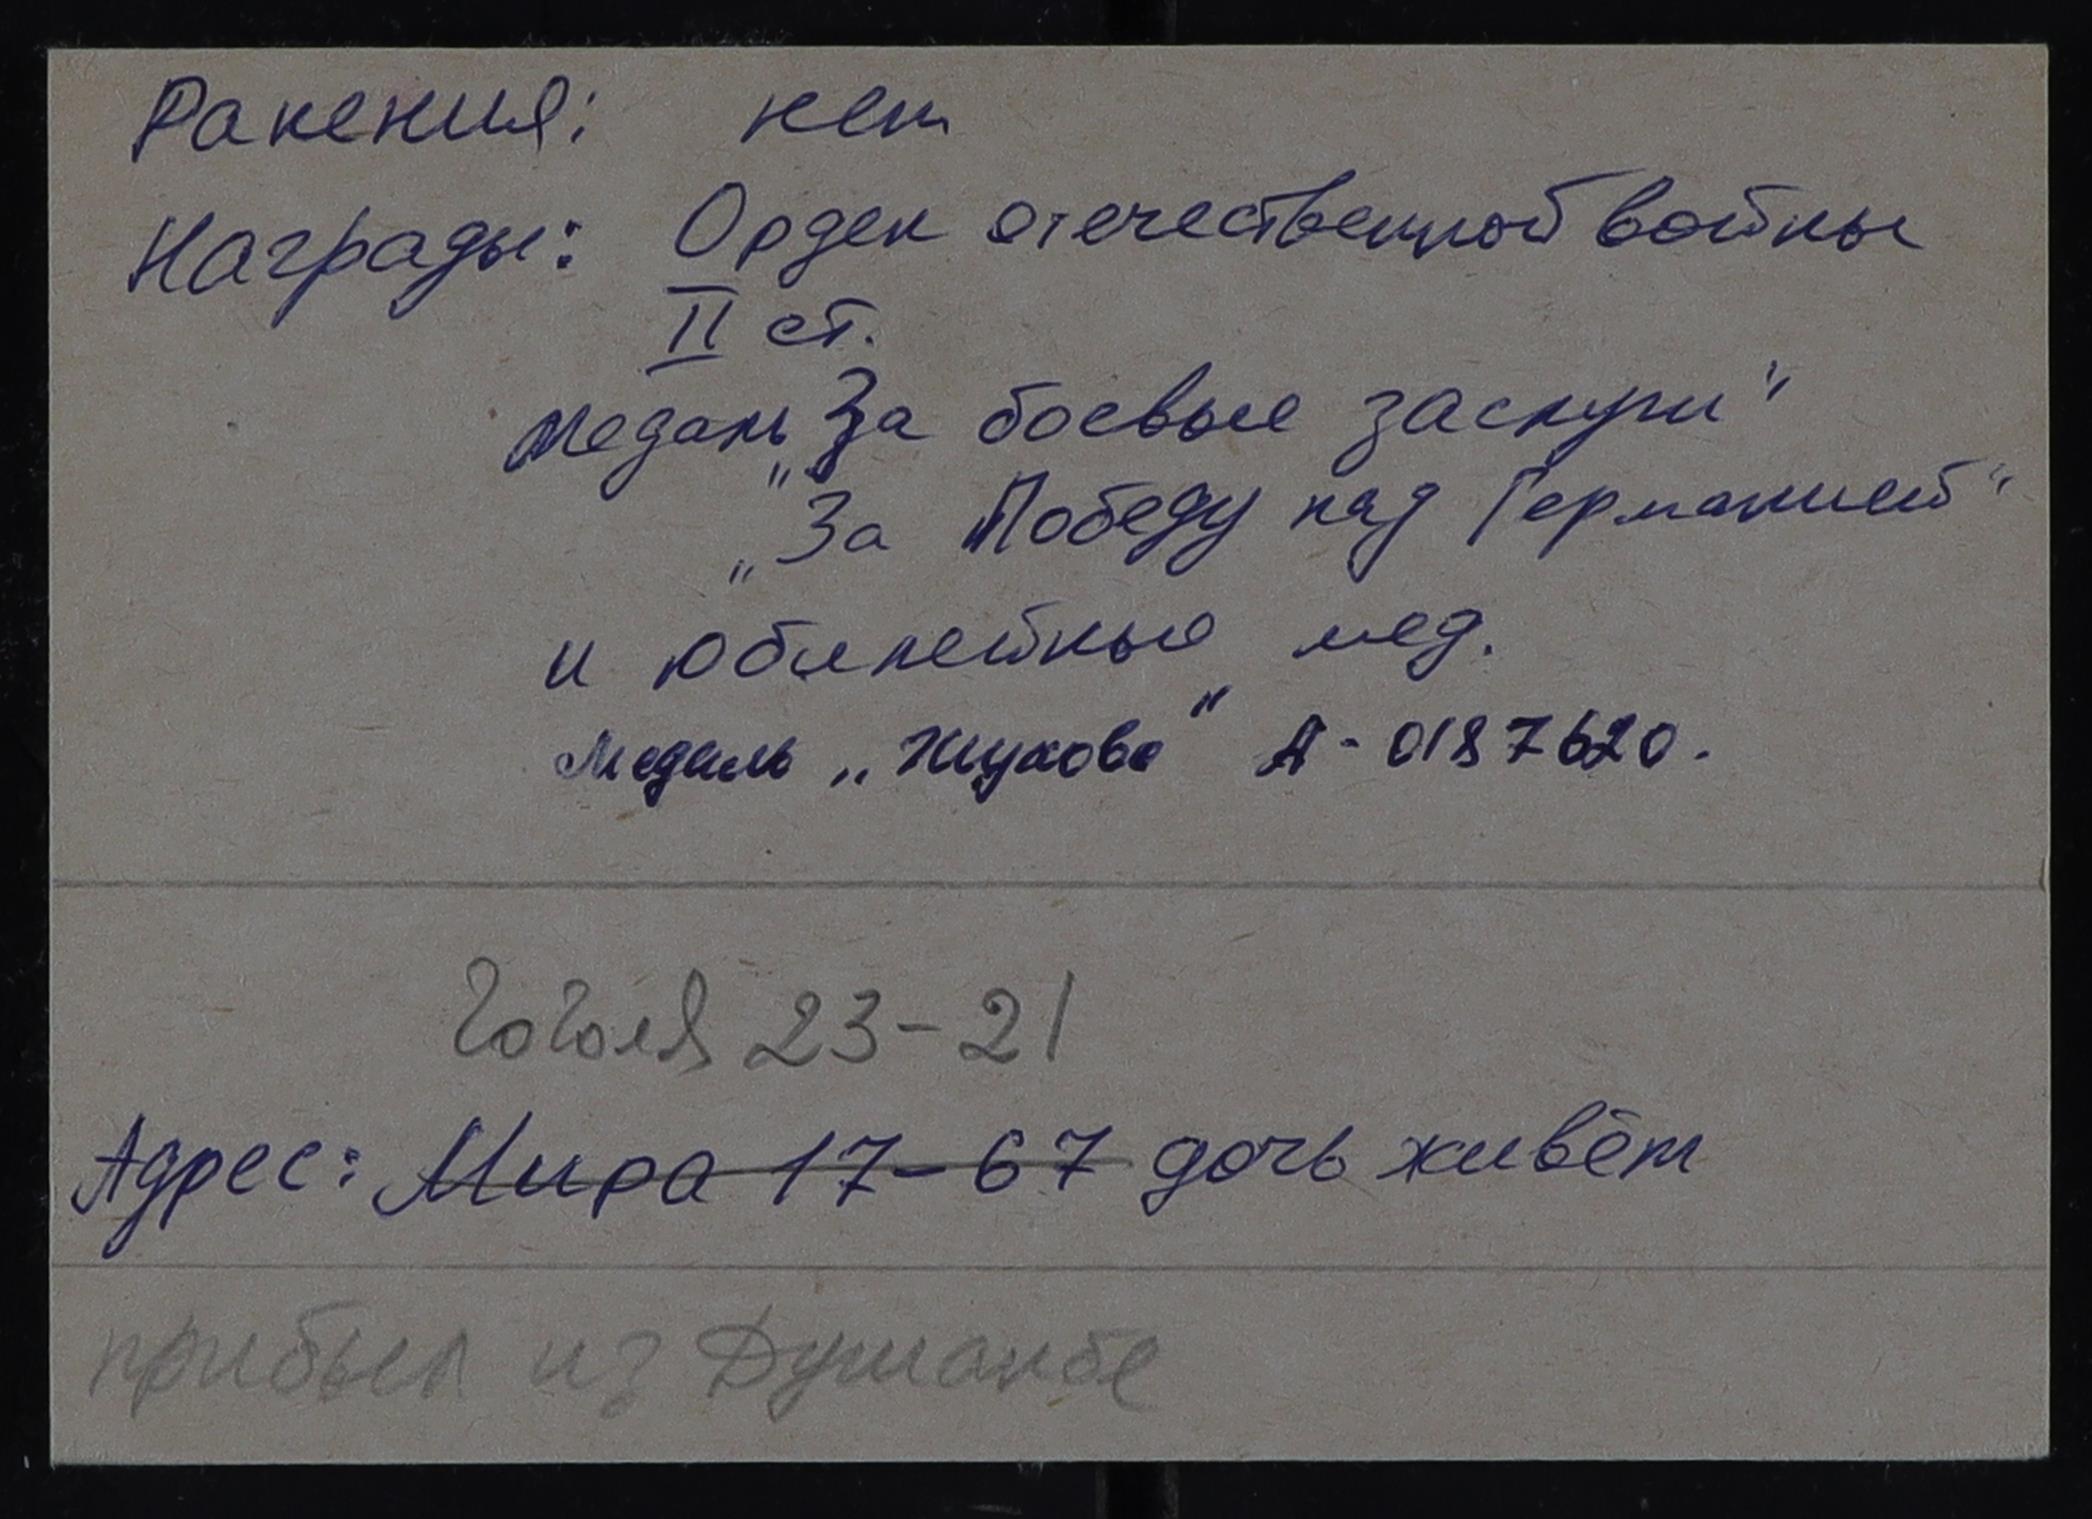 Ранения: нет
Награды: Орден отечественной войны
II ст.
Медаль „За боевые заслуги"
„За Победу над Германией"
и юбилейные мед.
Медаль „Жукова" А-0187620.
Гоголя 23-21
Адрес: Мира 17-67 дочь живёт
прибыл из Душанбе